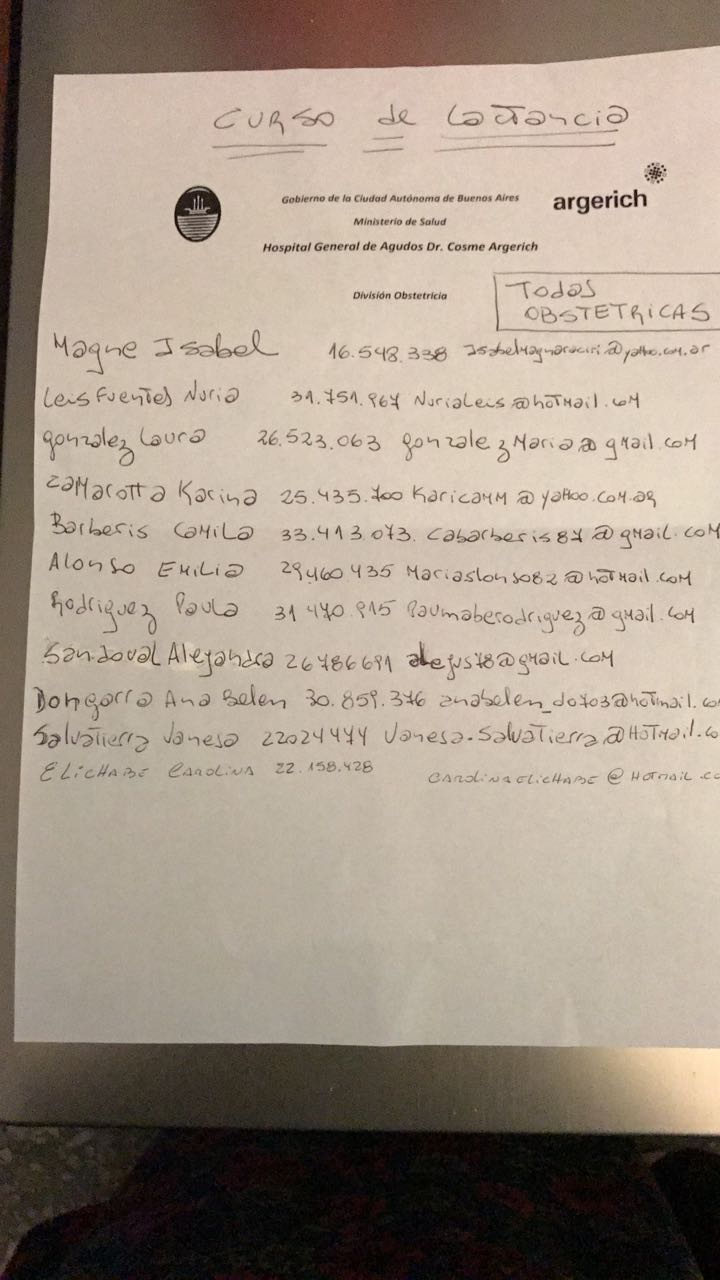 CURSO de Lactancia
Gobierno de la Ciudad Autónoma de Buenos Aires
argerich
Ministerio de Salud
Hospital General de Agudos Dr. Cosme Argerich
División Obstetricia
Todas
OBSTETRICAS
Magne Isabel 16.548.338
Leis Fuentes Nuria 31.751.967 Nurialeis@hotmail.com
gonzalez Laura 26.523.063 gonzalezMaria@gmail.com
Zamarotta Karina 25.435.700 Karicamm@yahoo.com.ar
Barberis Camila 33.413.073. Cabarberis87@gmail.com
Alonso Emilia 29460435 Mariaslonso82@hotmail.com
Rodriguez Paula 31470.915 Paumaberodriguez@gmail.com
Sandoval Alejandra 26786691 alejus78@gmail.com
Dongarra Ana Belen 30.859.376 anabelen_do703@hotmail.co
Salvatierra Vanesa 22024474 Vanesa.Salvatierra@Hotmail.co
ELICHABE CAROLINA 22.158.428 CAROLINAELICHABE@HOTMAIL.CO